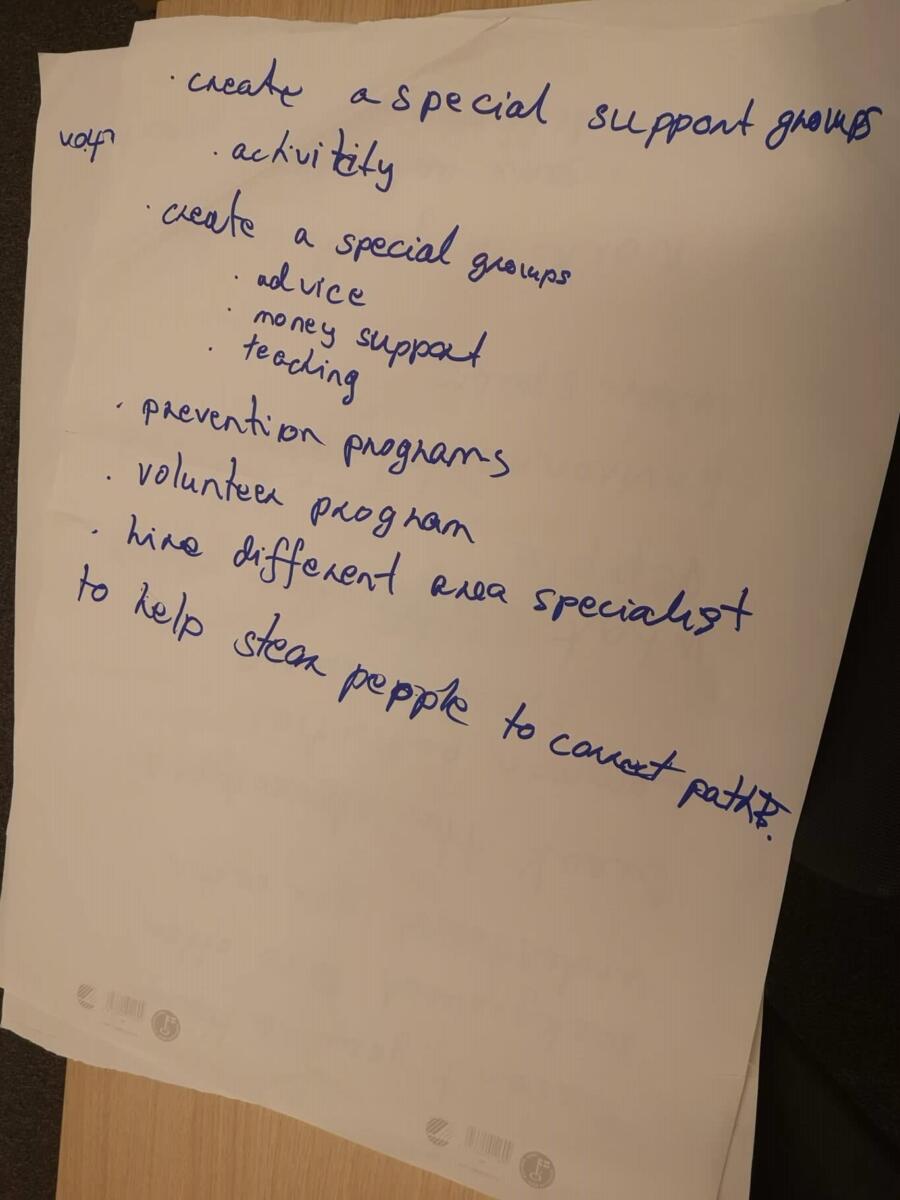 · create a special support groups
· activitity
· create a special groups
· advice
· money support
· teaching
· prevention programs
· volunteer program
· hire different area specialist
to help stear people to correct paths.